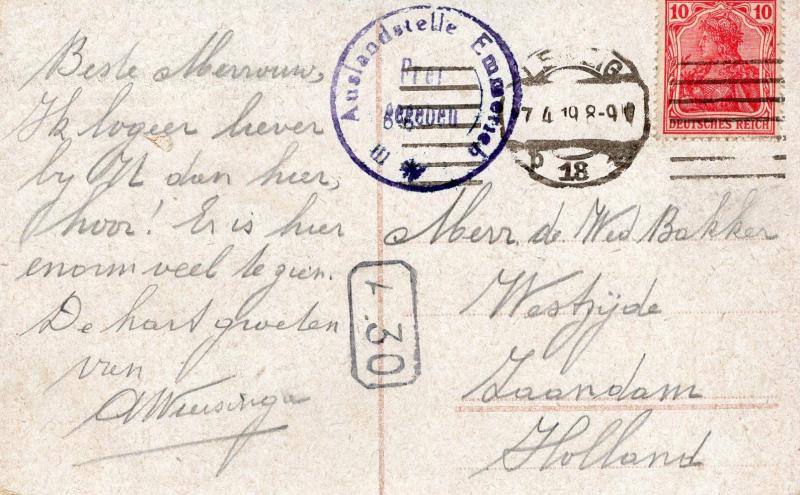 Beste Merrouw,
Ik logeer liever
by U dan hier,
hoor! Er is hier
enorm veel te zien.
De hart. groeten
van
Auslandstelle Emmerich
Frei
gegeben
m
LEIPZIG
7 4 19 8-9V
18
10 10
DEUTSCHES REICH
1 30
Merr. de Wed Bakker
Westzijde
Zaandam
Holland